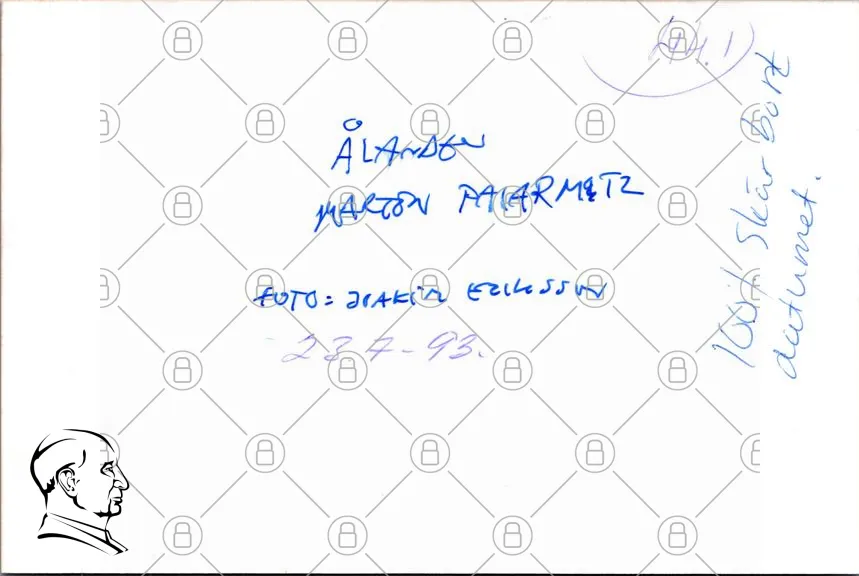 ÅLANDEN
MARTON PAJARMETZ
FOTO: JOAKIM ERIKSSON
23 7-93.
100% Skär bort
datumet.